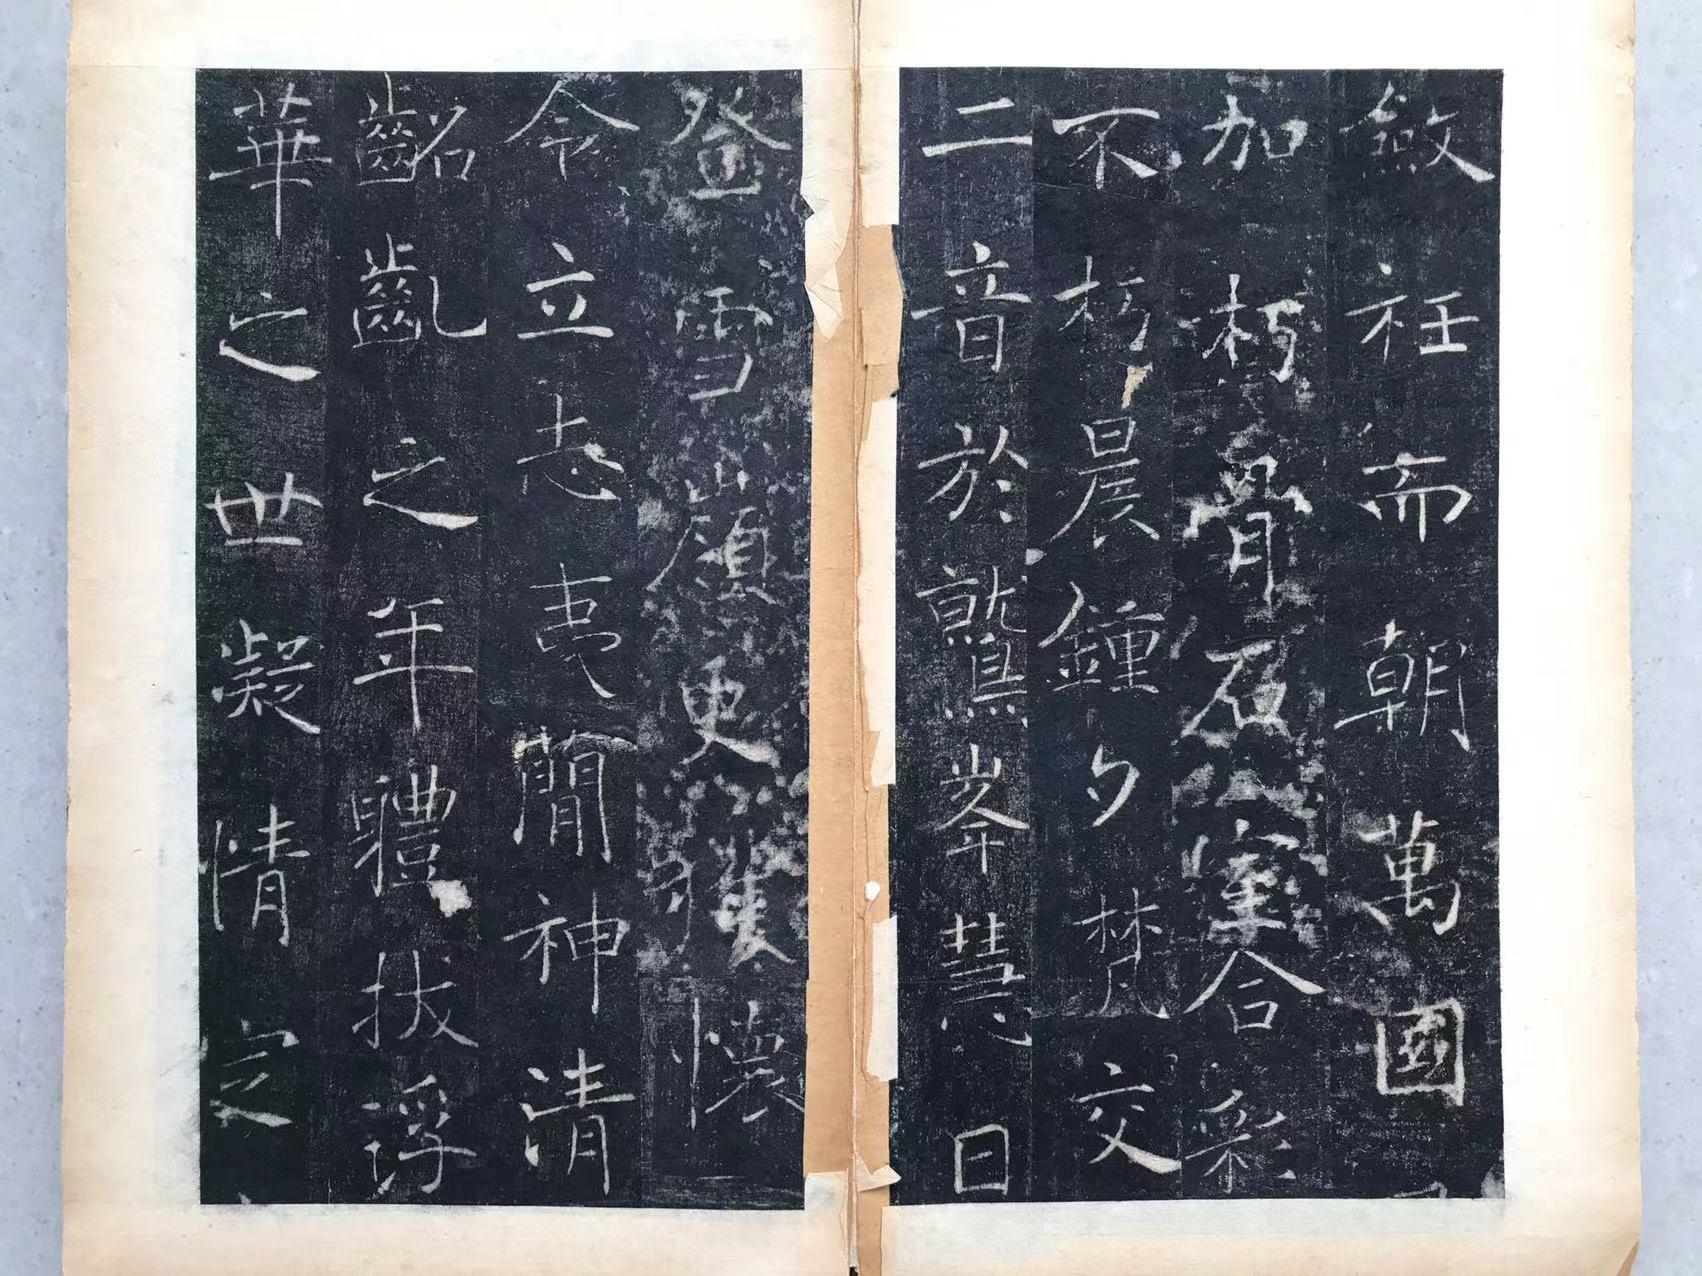 斂衽而朝萬國
加朽骨石室合彩
不朽晨鍾夕梵交
二音於鷲峯慧日
登雪嶺更獲懷
令立志夷簡神清
齠齔之年體拔浮
華之世凝情定